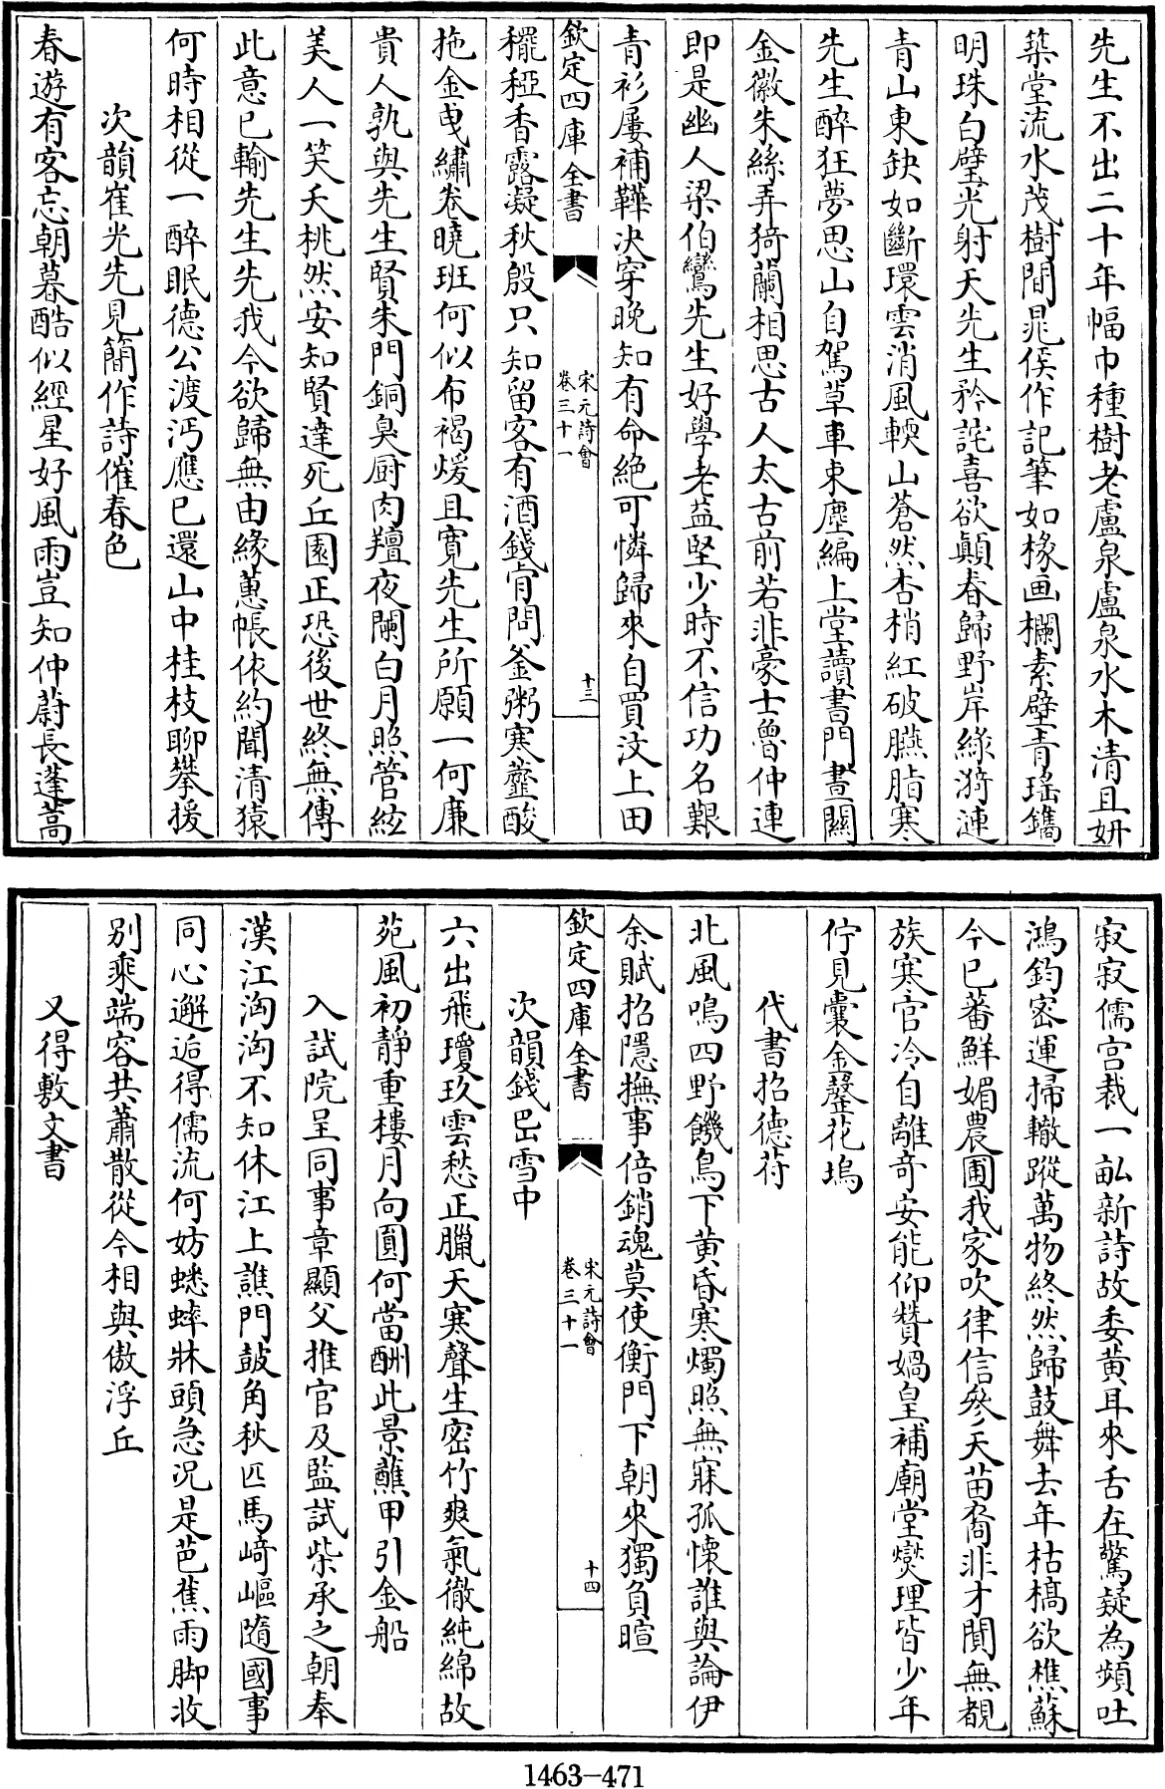 先生不出二十年幅巾種樹老盧泉盧泉水木清且妍
築堂流水茂樹間晁侯作記筆如椽画欄素壁青瑤鐫
明珠白璧光射天先生矜詫喜欲顛春歸野岸綠漪連
青山東缺如斷環雲消風輭山蒼然杏梢紅破臙脂寒
先生醉狂夢思山自駕草車束塵編上堂讀書門晝關
金徽朱絲弄猗蘭相思古人太古前若非豪士魯仲連
即是幽人梁伯鸞先生好學老益堅少時不信功名艱
青衫屢補鞾決穿晚知有命絕可憐歸來自買汶上田
欽定四庫全書
宋元詩會
卷三十一
十三
䆉稏香露凝秋殷只知留客有酒錢肯問釜粥寒虀酸
拖金曳繡卷曉班何似布褐煖且寬先生所願一何廉
貴人孰與先生賢朱門銅臭厨肉羶夜闌白月照管絃
美人一笑夭桃然安知賢達死丘園正恐後世終無傳
此意已輸先生先我今欲歸無由緣蕙帳依約聞清猿
何時相從一醉眠德公渡沔應已還山中桂枝聊攀援
次韻崔光先見簡作詩催春色
春遊有客忘朝暮酷似經星好風雨豈知仲蔚長蓬蒿
寂寂儒宫裁一畝新詩故委黄耳來舌在驚疑為頻吐
鴻鈞密運掃轍蹤萬物終然歸鼓舞去年枯槁欲樵蘇
今已蕃鮮媚農圃我家吹律信參天苗裔非才聞無覩
族寒官冷自離竒安能仰贊媧皇補廟堂燮理皆少年
佇見囊金罄花塢
代書招德苻
北風鳴四野饑烏下黄昏寒燭照無寐孤懐誰與論伊
余賦招隱撫事倍銷魂莫使衡門下朝來獨負暄
欽定四庫全書
宋元詩會
卷三十一
十四
次韻錢邑雪中
六出飛瓊玖雲愁正臘天寒聲生密竹爽氣徹純綿故
苑風初静重樓月向圓何當酬此景蘸甲引金船
入試院呈同事章顯父推官及監試柴承之朝奉
漢江洶洶不知休江上譙門鼓角秋匹馬﨑嶇随國事
同心邂逅得儒流何妨蟋蟀牀頭急况是芭蕉雨脚收
別乘端容共蕭散從今相與傲浮丘
又得敷文書
1463-471